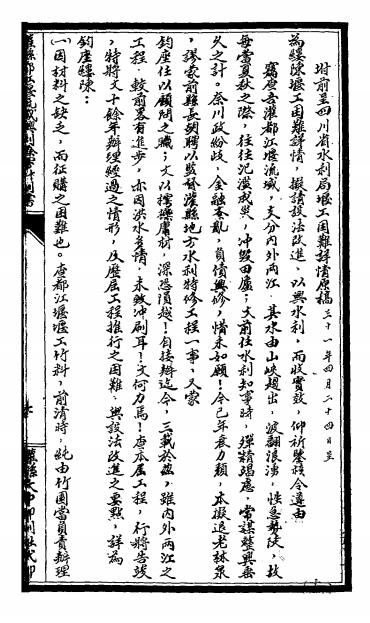 附前呈四川省水利局堰工困難詳情原稿 三十一年四月二十四日呈
為縷陳堰工困難詳情，擬請設法改進，以興水利，而收實效，仰祈鑒核令遵由
竊查吾灌都江堰流域，支分內外兩江，其水由山峽趨出，波翻浪湧，性急勢陡，故
每當夏秋之際，往往氾濫成災，沖毀田廬；文前任水利知事時，殫精竭慮，常謀整興垂
久之計。奈川政紛歧，金融紊亂，負債興修，惜未如願！今已年衰力頹，本擬退老林泉
，謬蒙前縣長胡聘以監督灌縣地方水利特修工程一事，又蒙
鈞座任以顧問之職；文以樗櫟庸材，深恐隕越！自接辦迄今，三載於茲，雖內外兩江之
工程，較前畧有進步，亦因洪水多情，未致冲刷耳！文何力焉！查本屆工程，行將告竣
，特將文十餘年辦理經過之情形，及歷屆工程推行之困難，與設法改進之要點，詳為
鈞座縷陳：
㈠因材料之缺乏，而征購之困難也。查都江堰堰工竹料，前清時，純由竹園當負責辦理